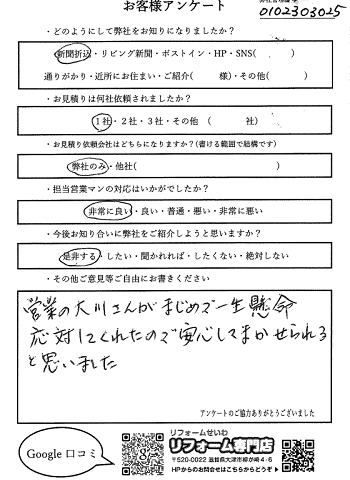 お客様アンケート
0102303025
・どのようにして弊社をお知りになりましたか？
新聞折込・リビング新聞・ポストイン・HP・SNS(　　　)
通りがかり・近所にお住まい・ご紹介(　　様)・その他(　　)
・お見積りは何社依頼されましたか？
1社・2社・3社・その他　(　　　社)
・お見積り依頼会社はどちらになりますか？(書ける範囲で結構です)
弊社のみ・他社(　　　　　　　　　)
・担当営業マンの対応はいかがでしたか？
非常に良い・良い・普通・悪い・非常に悪い
・今後お知り合いに弊社をご紹介しようと思いますか？
是非する・したい・聞かれれば・したくない・絶対しない
・その他ご意見等ご自由にお書きください
営業の大川さんがまじめで一生懸命
応対してくれたので安心してまかせられる
と思いました
アンケートのご協力ありがとうございました
Google 口コミ
リフォームせいわ
リフォーム専門店
〒520-0022 滋賀県大津市柳が崎4-6
HPからのお問合せはこちらからどうぞ